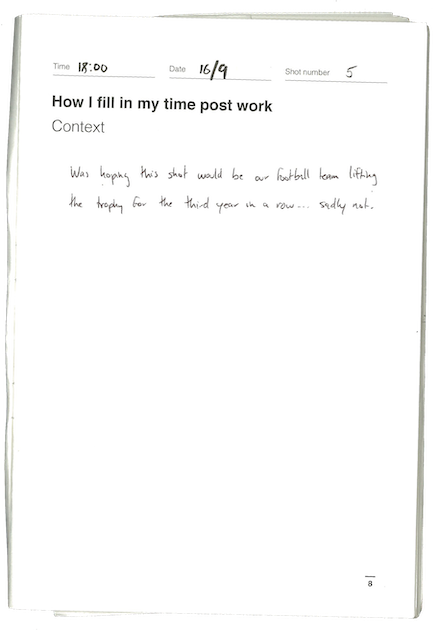 Time 18:00 Date 16/9 Shot number 5
How I fill in my time post work
Context
Was hoping this shot would be our football team lifting
the trophy for the third year in a row... sadly not.
8